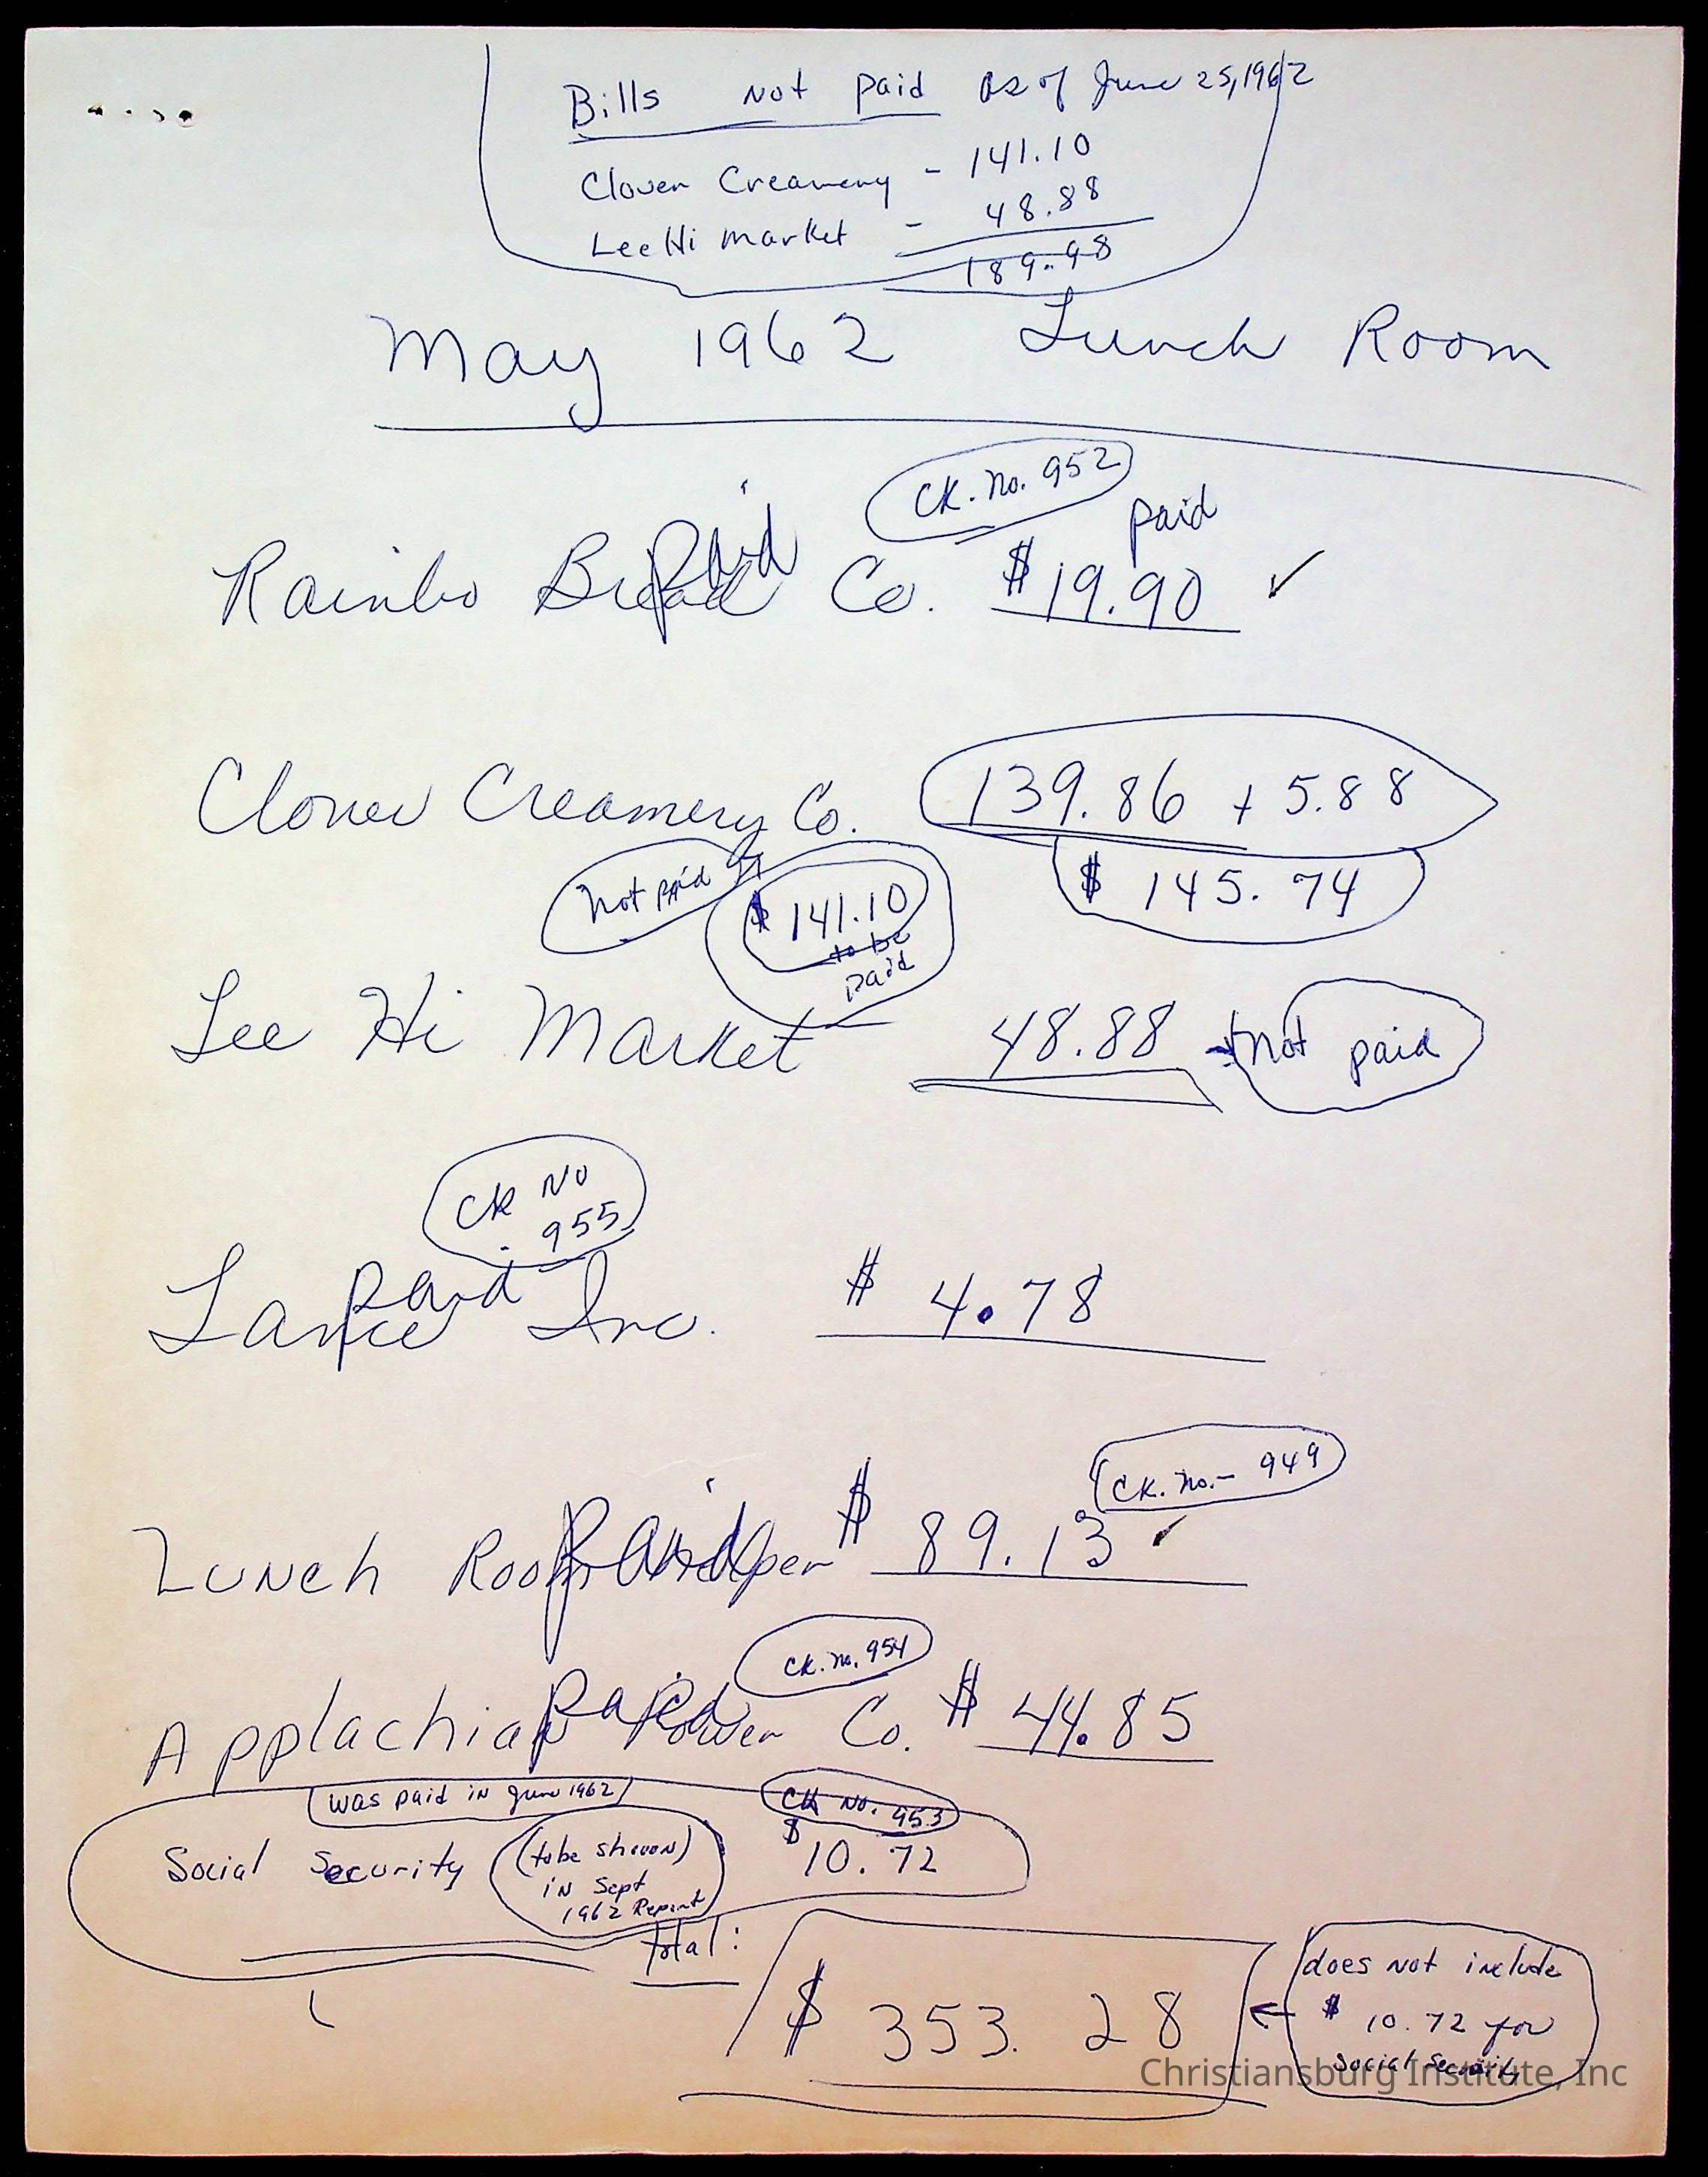 Bills Not Paid as of June 25, 1962
Clover Creamery - 141.10
Lee Hi Market - 48.88
189.98
May 1962 Lunch Room
Ck. No. 952
paid
Rainbo Bread Co. $19.90 ✓
Paid
Clover Creamery Co. 139.86 + 5.88
$ 145.74
Not paid
$ 141.10
to be
paid
Lee Hi Market 48.88 Not paid
Ck No
955
Paid
Lance Inc. $ 4.78
Ck. No. - 949
Paid
Lunch Room $ 89.13 ✓
Ck. No. 954
Paid
Applachian Power Co. $ 44.85
was paid in June 1962
Ck No. 953
Social Security (to be shown) $ 10.72
in Sept
1962 Report
Total:
$ 353.28
does not include
$ 10.72 for
Social Security
Christiansburg Institute, Inc